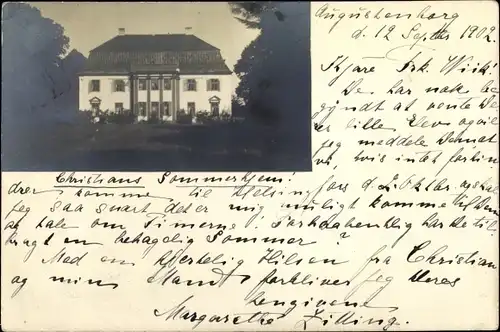 Augustenborg
d. 12 Septbr 1902.
Kjære Frk. Wiik!
De har nok be
gyndt at vente De
res lille Elev og vil
jeg meddele Dem at
vi, hvis intet forhin
Christians Sommerhjem!
drer komme til Helsingfors d. 2. Oktbr. og skal
jeg saa snart det er mig muligt komme til Dem
og tale om Timerne. Forhaabentlig har De til
bragt en behagelig Sommer?
Med en hjertelig Hilsen fra Christian
og min Mand forbliver jeg Deres
hengivne
Margarethe Zilling.